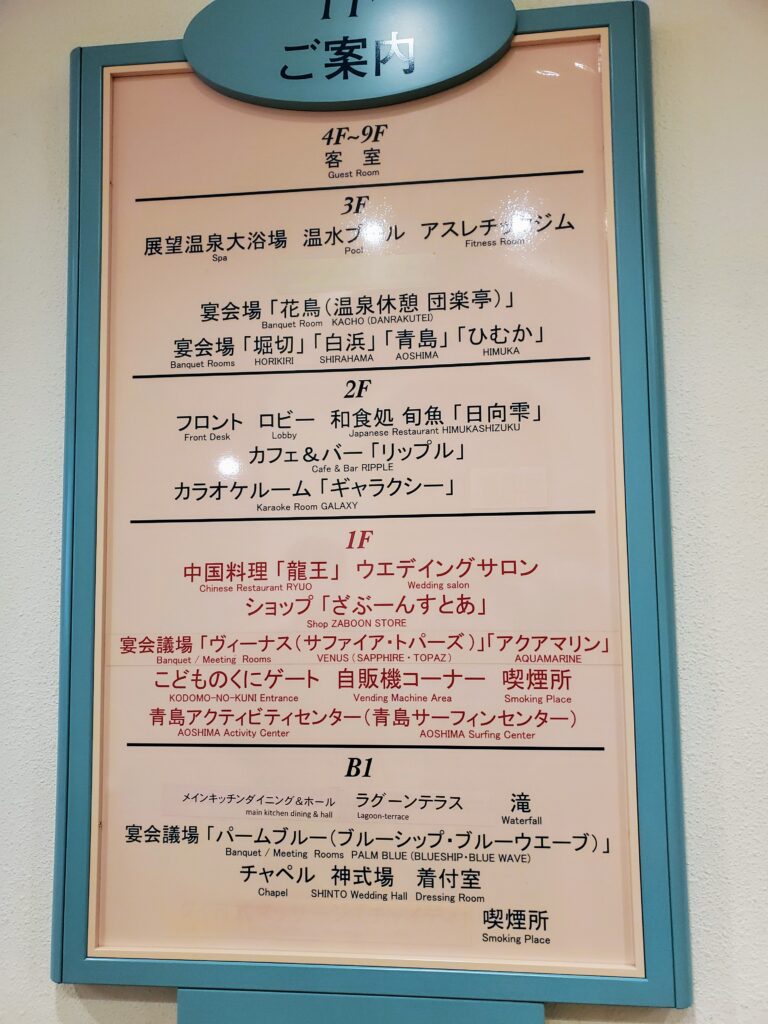 ご案内
4F~9F
客 室
Guest Room
3F
展望温泉大浴場 温水プール アスレチックジム
Spa Pool Fitness Room
宴会場「花鳥(温泉休憩 団楽亭)」
Banquet Room KACHO (DANRAKUTEI)
宴会場「堀切」「白浜」「青島」「ひむか」
Banquet Rooms HORIKIRI SHIRAHAMA AOSHIMA HIMUKA
2F
フロント ロビー 和食処 旬魚「日向雫」
Front Desk Lobby Japanese Restaurant HIMUKASHIZUKU
カフェ&バー「リップル」
Cafe & Bar RIPPLE
カラオケルーム「ギャラクシー」
Karaoke Room GALAXY
1F
中国料理「龍王」 ウエデイングサロン
Chinese Restaurant RYUO Wedding salon
ショップ「ざぶーんすとあ」
Shop ZABOON STORE
宴会議場「ヴィーナス(サファイア・トパーズ)」「アクアマリン」
Banquet / Meeting Rooms VENUS (SAPPHIRE・TOPAZ) AQUAMARINE
こどものくにゲート 自販機コーナー 喫煙所
KODOMO-NO-KUNI Entrance Vending Machine Area Smoking Place
青島アクティビティセンター(青島サーフィンセンター)
AOSHIMA Activity Center AOSHIMA Surfing Center
B1
メインキッチンダイニング&ホール ラグーンテラス 滝
main kitchen dining & hall Lagoon-terrace Waterfall
宴会議場「パームブルー(ブルーシップ・ブルーウエーブ)」
Banquet / Meeting Rooms PALM BLUE (BLUESHIP・BLUE WAVE)
チャペル 神式場 着付室
Chapel SHINTO Wedding Hall Dressing Room
喫煙所
Smoking Place